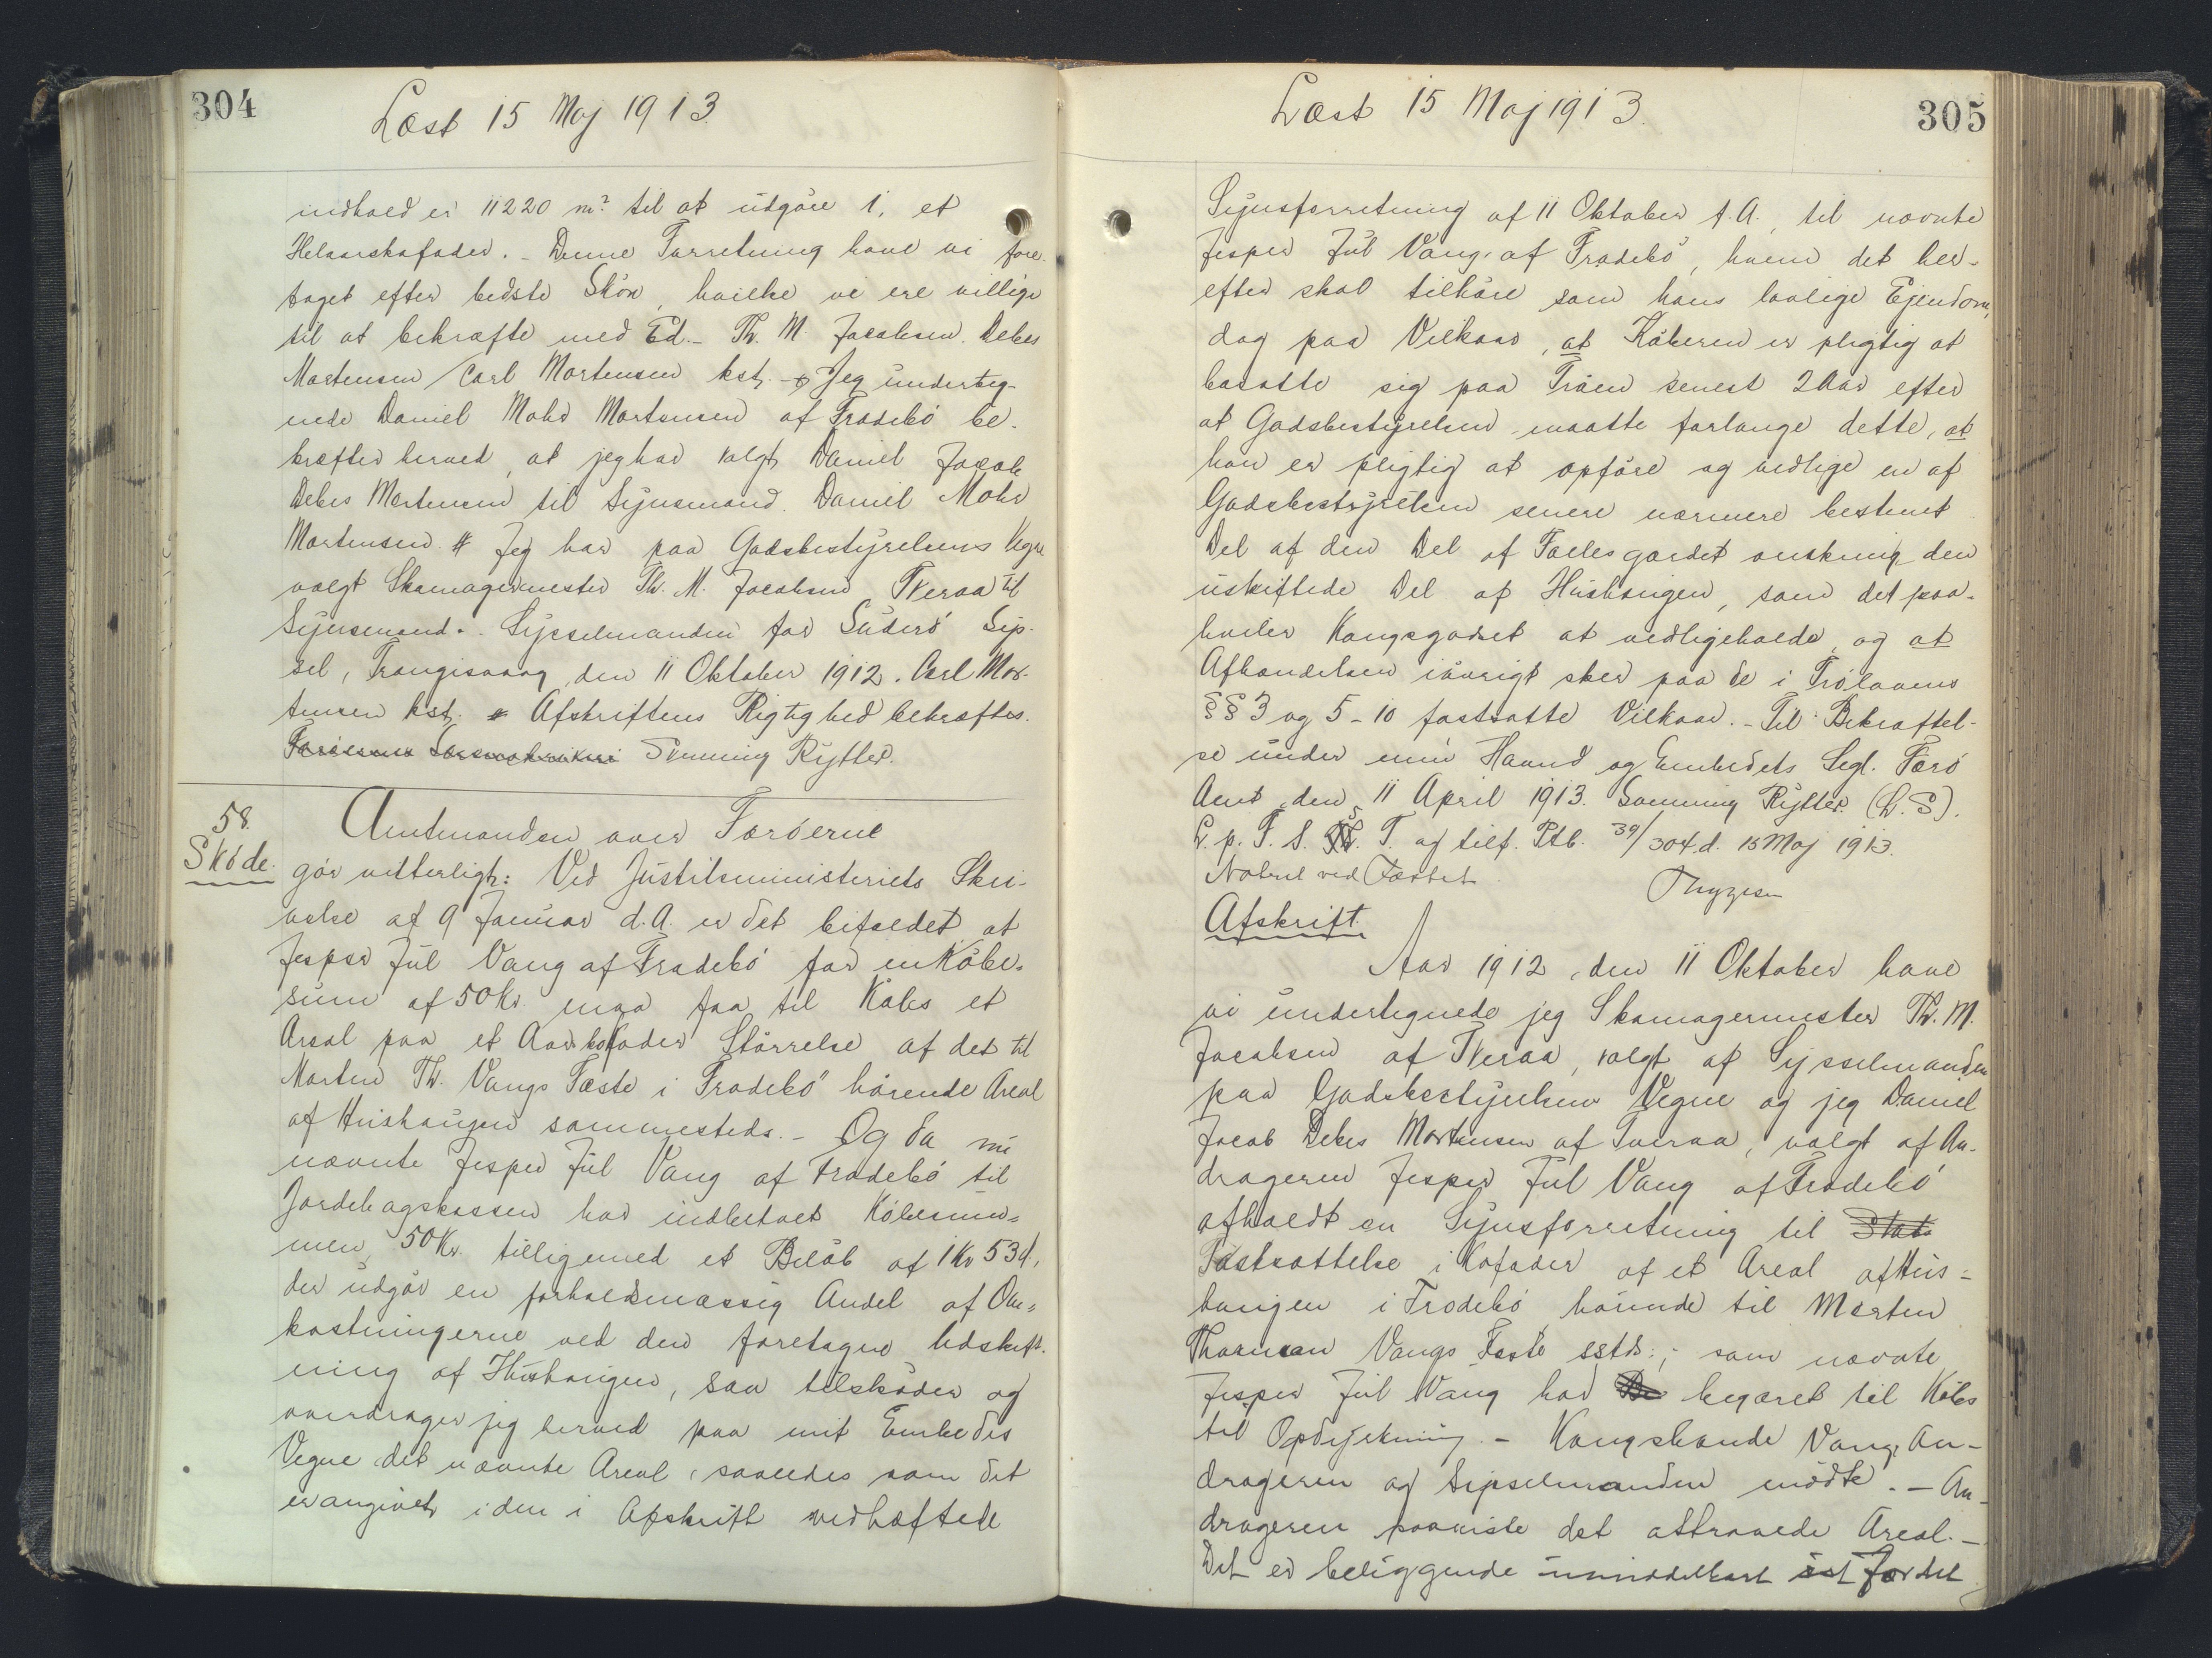 304
Læst 15 Maj 1913
indhold er 11220 m² til at udgøre 1, et
Helaarskofoder. - Denne Forretning have vi fore-
taget efter bedste Skön, hvilke vi ere villige
til at bekræfte med Ed. - Th. M. Jacobsen. Debes
Mortensen / Carl Mortensen kst. - Jeg underteg-
nede Daniel Mohr Mortensen af Frodebö be-
kræfter herved, at jeg har valgt Daniel Jacob
Debes Mortensen til Synsmand. Daniel Mohr
Mortensen. # Jeg har paa Godsbestyrelsens Vegne
valgt Skomagermester Th. M. Jacobsen Tveraa til
Synsmand. - Sysselmanden for Suderö Sys-
sel, Trangisvaag, den 11 Oktober 1912. Carl Mor-
tensen kst. Afskriftens Rigtighed bekræftes.
Svenning Rytter.
58.
Sköde.
Amtmanden over Færöerne
gör vitterligt: Ved Justitsministeriets Skri-
velse af 9 Januar d.A. er det bifaldet at
Jesper Jul Vang af Frodebö for en Köbe-
sum af 50 Kr. maa faa til Köbs et
Areal paa et Aarskofoders Störrelse af det til
Morten Th. Vangs Fæste i Frodebö hörende Areal
af Hushaugen sammesteds. - Og da nu
nævnte Jesper Jul Vang af Frodebö til
Jordebogskassen har indbetalt Köbesum-
men, 50 Kr. tilligemed et Belöb af 1 Kr 53 d,
der udgör en forholdsmæssig Andel af Om-
kostningerne ved den foretagne Udskift-
ning af Hushaugen, saa tilsköder og
overdrager jeg herved paa mit Embedes
Vegne det nævnte Areal, saaledes som det
er angivet i den i Afskrift vedhæftede
Læst 15 Maj 1913.
305
Synsforretning af 11 Oktober f.A., til nævnte
Jesper Jul Vang af Frodebö, hvem det her-
efter skal tilhöre som hans lovlige Ejendom,
dog paa Vilkaar, at Köberen er pligtig at
bosætte sig paa Tröen senest 2 Aar efter
at Godsbestyrelsen maatte forlange dette, at
han er pligtig at opföre og vedlige en af
Godsbestyrelsen senere nærmere bestemt
Del af den Del af Fællesgærdet omkring den
uskiftede Del af Hushaugen, som det paa-
hviler Kongsgodset at vedligeholde, og at
Afhændelsen iövrigt sker paa de i Trölovens
§§ 3 og 5-10 fastsatte Vilkaar. - Til Bekræftel-
se under min Haand og Embedets Segl. Færö
Amt, den 11 April 1913. Svenning Rytter. (L.S).
L. p. F. S. T. og tilf. Ptb. 39/304. d. 15 Maj 1913.
Noteret ved Fæstet.
Afskrift.
Aar 1912, den 11 Oktober have
vi undertegnede jeg Skomagermester Th. M.
Jacobsen af Tveraa, valgt af Sysselmanden
paa Godsbestyrelsens Vegne og jeg Daniel
Jacob Debes Mortensen af Tveraa, valgt af An-
drageren Jesper Jul Vang af Frodebö
afholdt en Synsforretning til Stat
Fastsættelse i Kofoder af et Areal af Hus-
haugen i Frodebö hörende til Morten
Thomsen Vangs Fæste sstds.; som nævnte
Jesper Jul Vang har De begæret til Köbs
til Opdyrkning. - Kongsbonde Vang, An-
drageren og Sysselmanden mödte. - An-
drageren paaviste det attraaede Areal. -
Det er beliggende umiddelbart öst for det